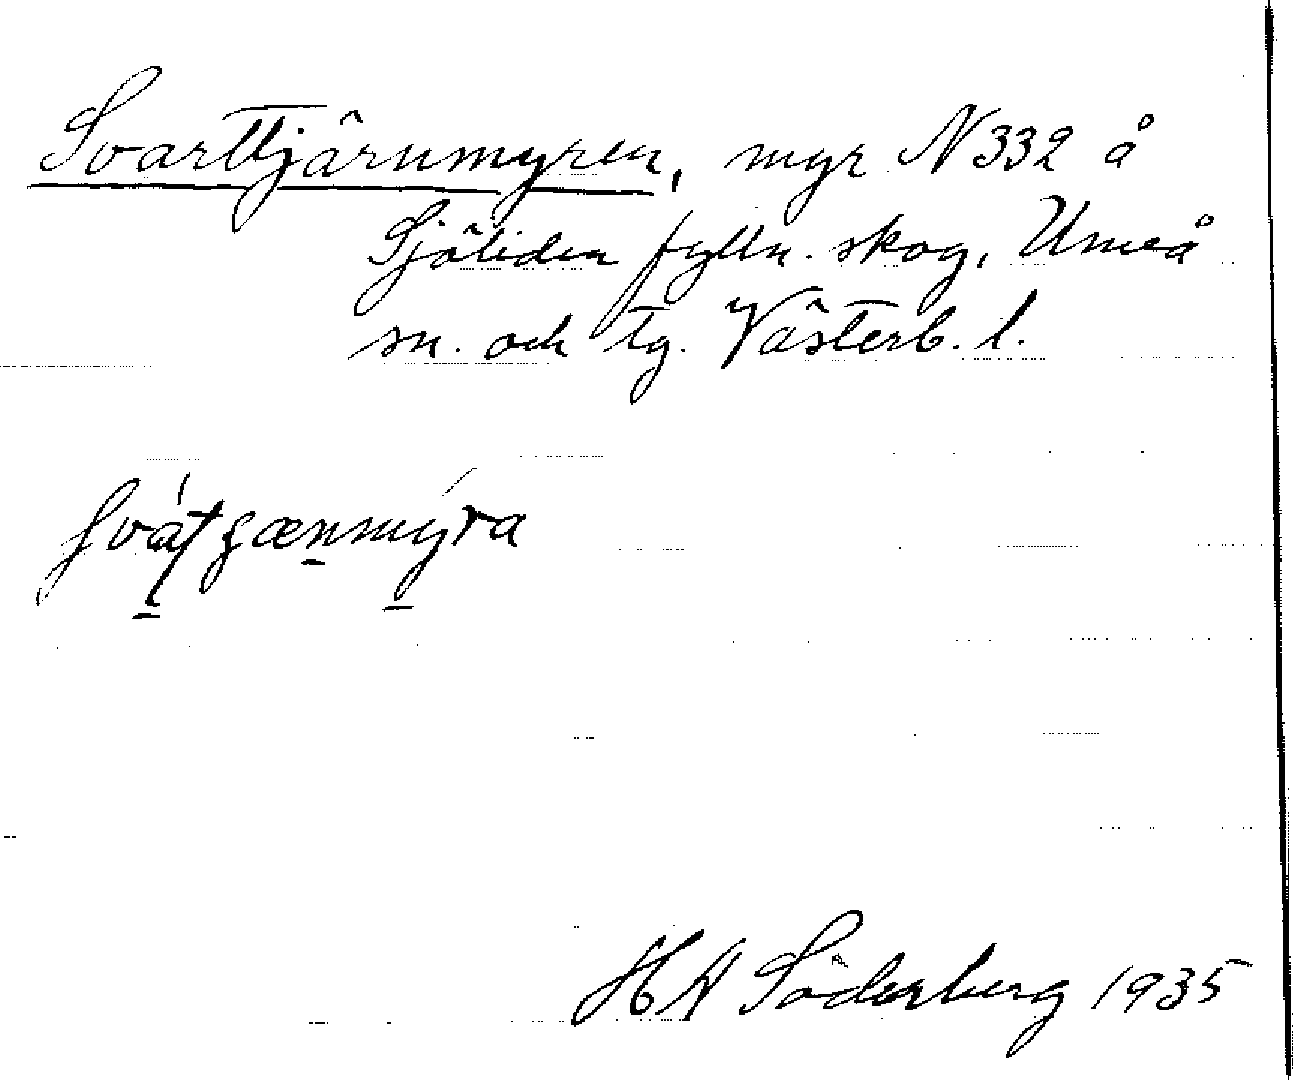 Svarttjärnmyren, myr N 332 å
Sjöliden fylln. skog, Umeå
sn. och tg. Västerb. l.
H H Söderberg 1935